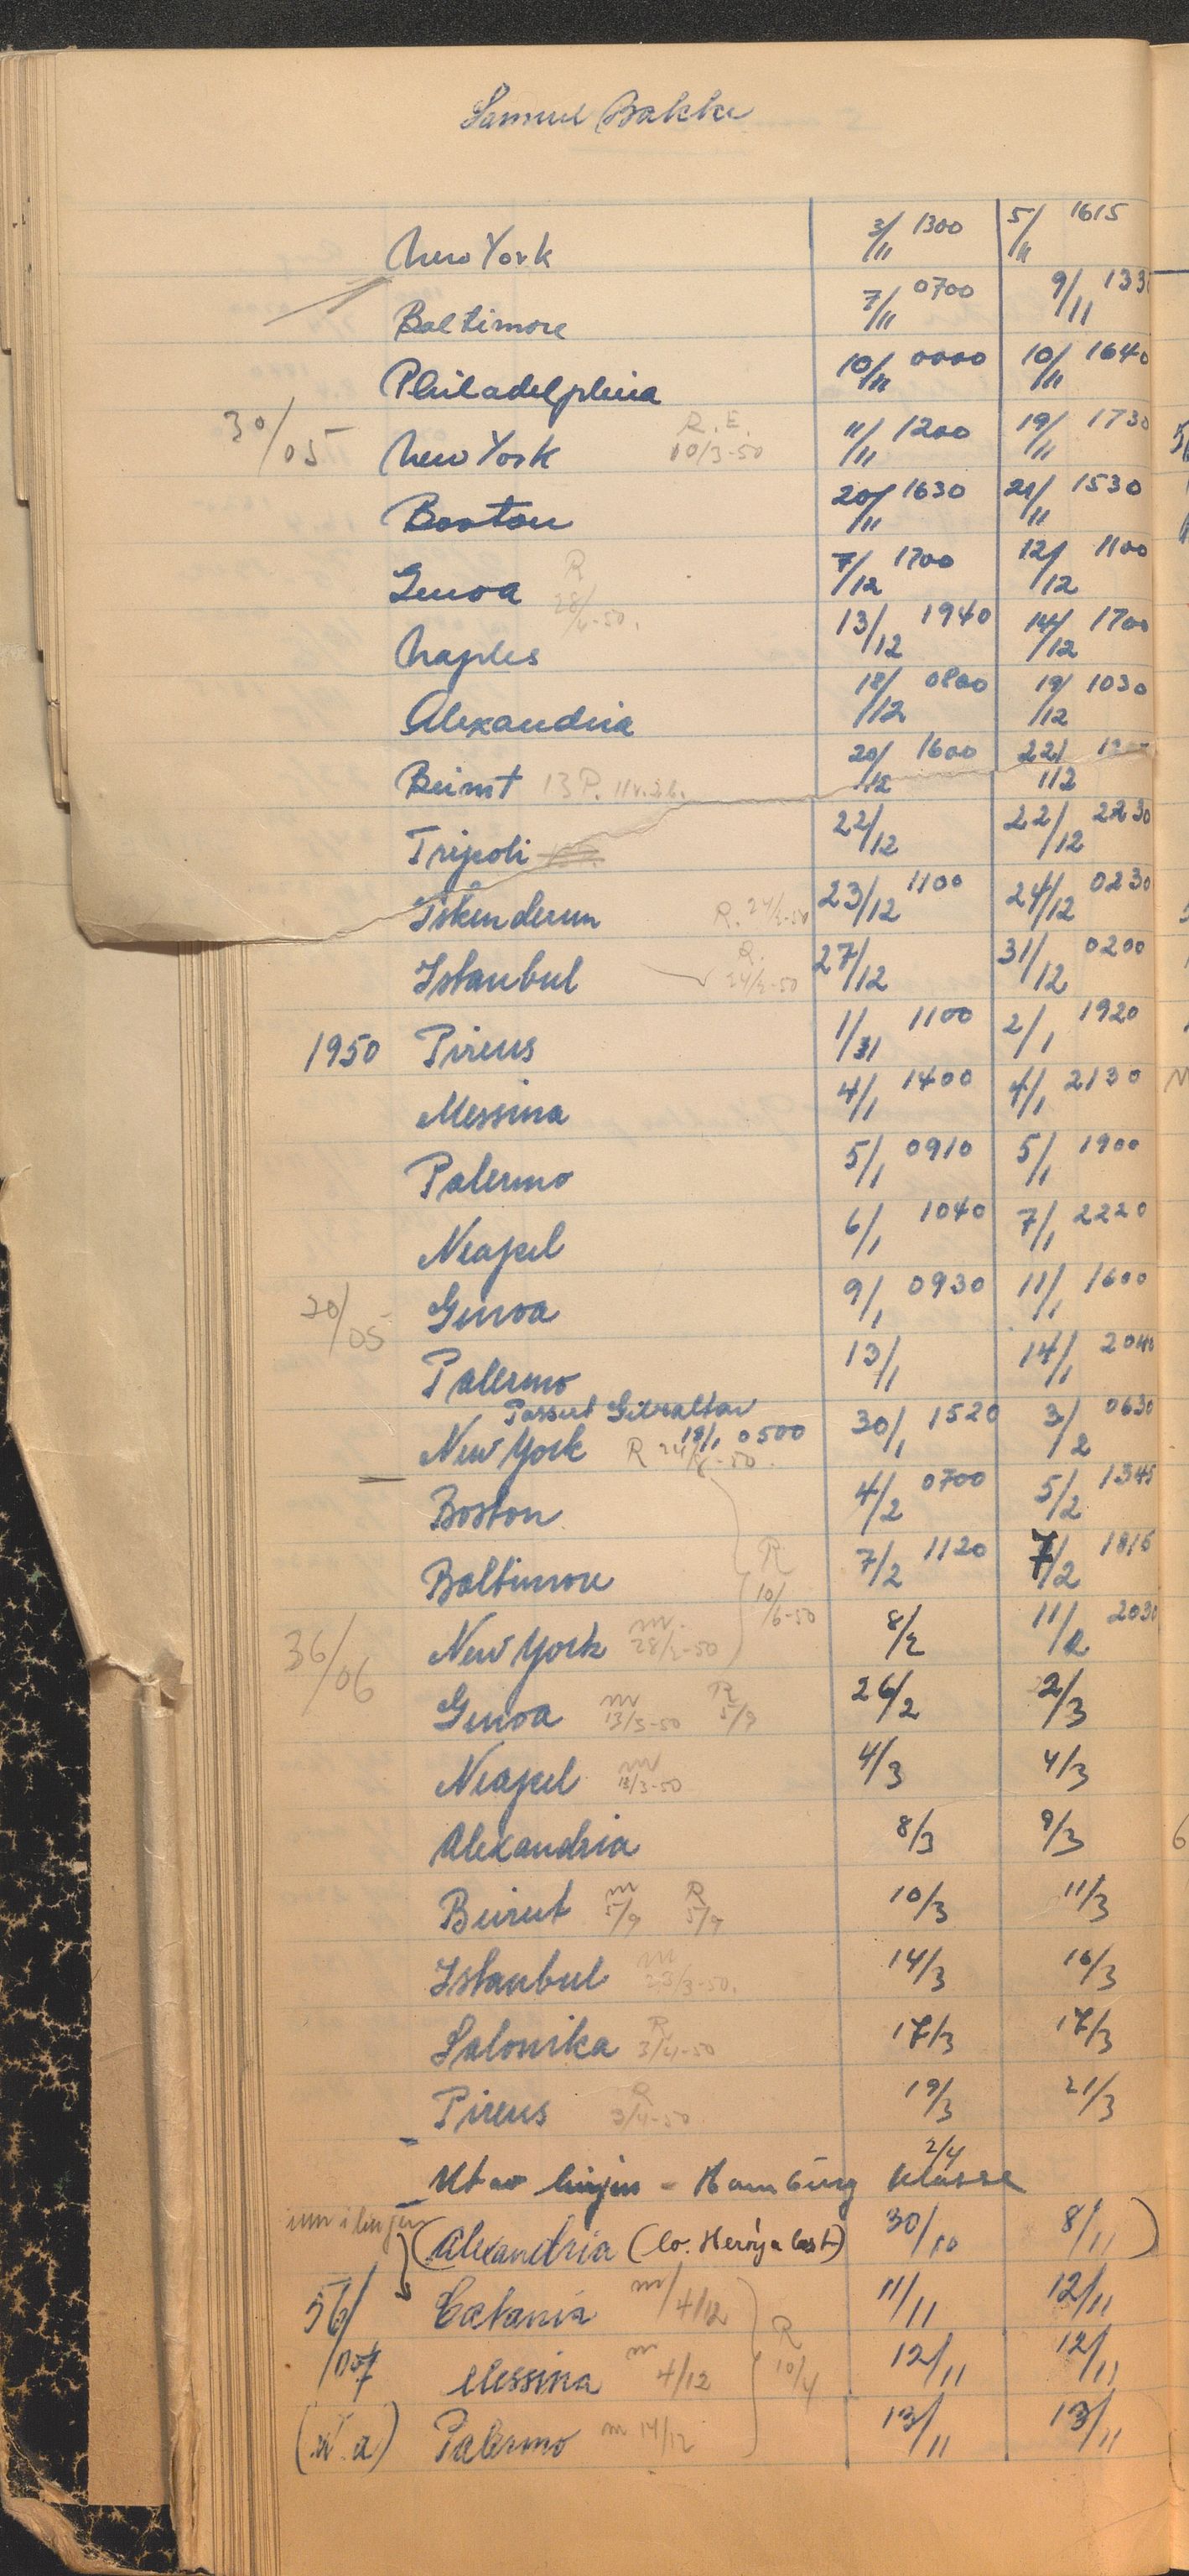 Samuel Bakke
New York 3/11 1300 5/11 1615
Baltimore 7/11 0700 9/11 133
Philadelphia 10/11 0000 10/11 1640
30/05 New York R.E. 10/3-50 11/11 1200 19/11 1730
Boston 20/11 1630 21/11 1530
Genoa R 28/ -50. 7/12 1700 12/12 1100
Naples 13/12 1940 14/12 1700
Alexandria 18/12 0800 19/12 1030
Beirut 13 P. 20/12 1600 22/12
Tripoli 22/12 22/12 2230
Iskenderun R. 24/2-50 23/12 1100 24/12 0230
Istanbul R. 24/2-50 27/12 31/12 0200
1950 Pireus 1/ 1100 2/1 1920
Messina 4/1 1400 4/1 2130
Palermo 5/1 0910 5/1 1900
Neapel 6/1 1040 7/1 2220
30/05 Genoa 9/1 0930 11/1 1600
Palermo 13/1 14/1 2040
Passert Gibraltar
New York 18/1 0500 30/1 1520 3/2 0630
R 24/ -50.
Boston 4/2 0700 5/2 1345
Baltimore R 10/6-50 7/2 1120 7/2 1815
36/06 New York m. 28/2-50 8/2 11/2 2030
Genoa m 13/3-50 R 5/9 26/2 2/3
Neapel m 13/3-50 4/3 4/3
Alexandria 8/3 9/3
Beirut m 5/9 R 5/9 10/3 11/3
Istanbul m 23/3-50. 14/3 16/3
Salonika R 3/4-50 17/3 17/3
Pireus R 3/4-50 19/3 21/3
Ut av linjen - Hamburg 2/4 klasse
inn i linjen (Alexandria (lo. Herøya last) 30/10 8/11)
56/007 Catania m/4/12 11/11 12/11
Messina m 4/12 R 10/4 12/11 12/11
Palermo m 14/12 13/11 13/11